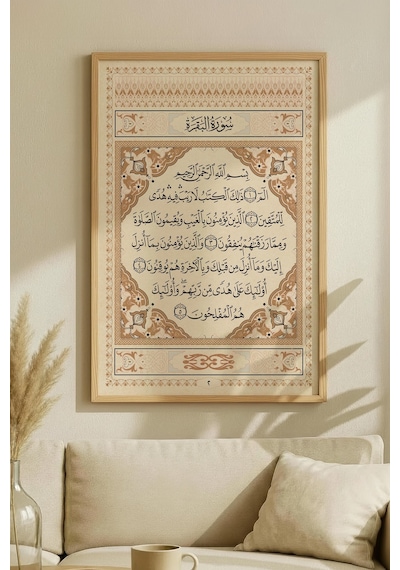 سُورَةُ البَقَرَةِ
بِسْمِ اللَّهِ الرَّحْمَٰنِ الرَّحِيمِ
الٓمٓ ١ ذَٰلِكَ الْكِتَٰبُ لَا رَيْبَ فِيهِ هُدًى
لِّلْمُتَّقِينَ ٢ الَّذِينَ يُؤْمِنُونَ بِالْغَيْبِ وَيُقِيمُونَ الصَّلَوٰةَ
وَمِمَّا رَزَقْنَٰهُمْ يُنفِقُونَ ٣ وَالَّذِينَ يُؤْمِنُونَ بِمَا أُنزِلَ
إِلَيْكَ وَمَا أُنزِلَ مِن قَبْلِكَ وَبِالْآخِرَةِ هُمْ يُوقِنُونَ ٤
أُولَٰئِكَ عَلَىٰ هُدًى مِّن رَّبِّهِمْ وَأُولَٰئِكَ
هُمُ الْمُفْلِحُونَ ٥
٢